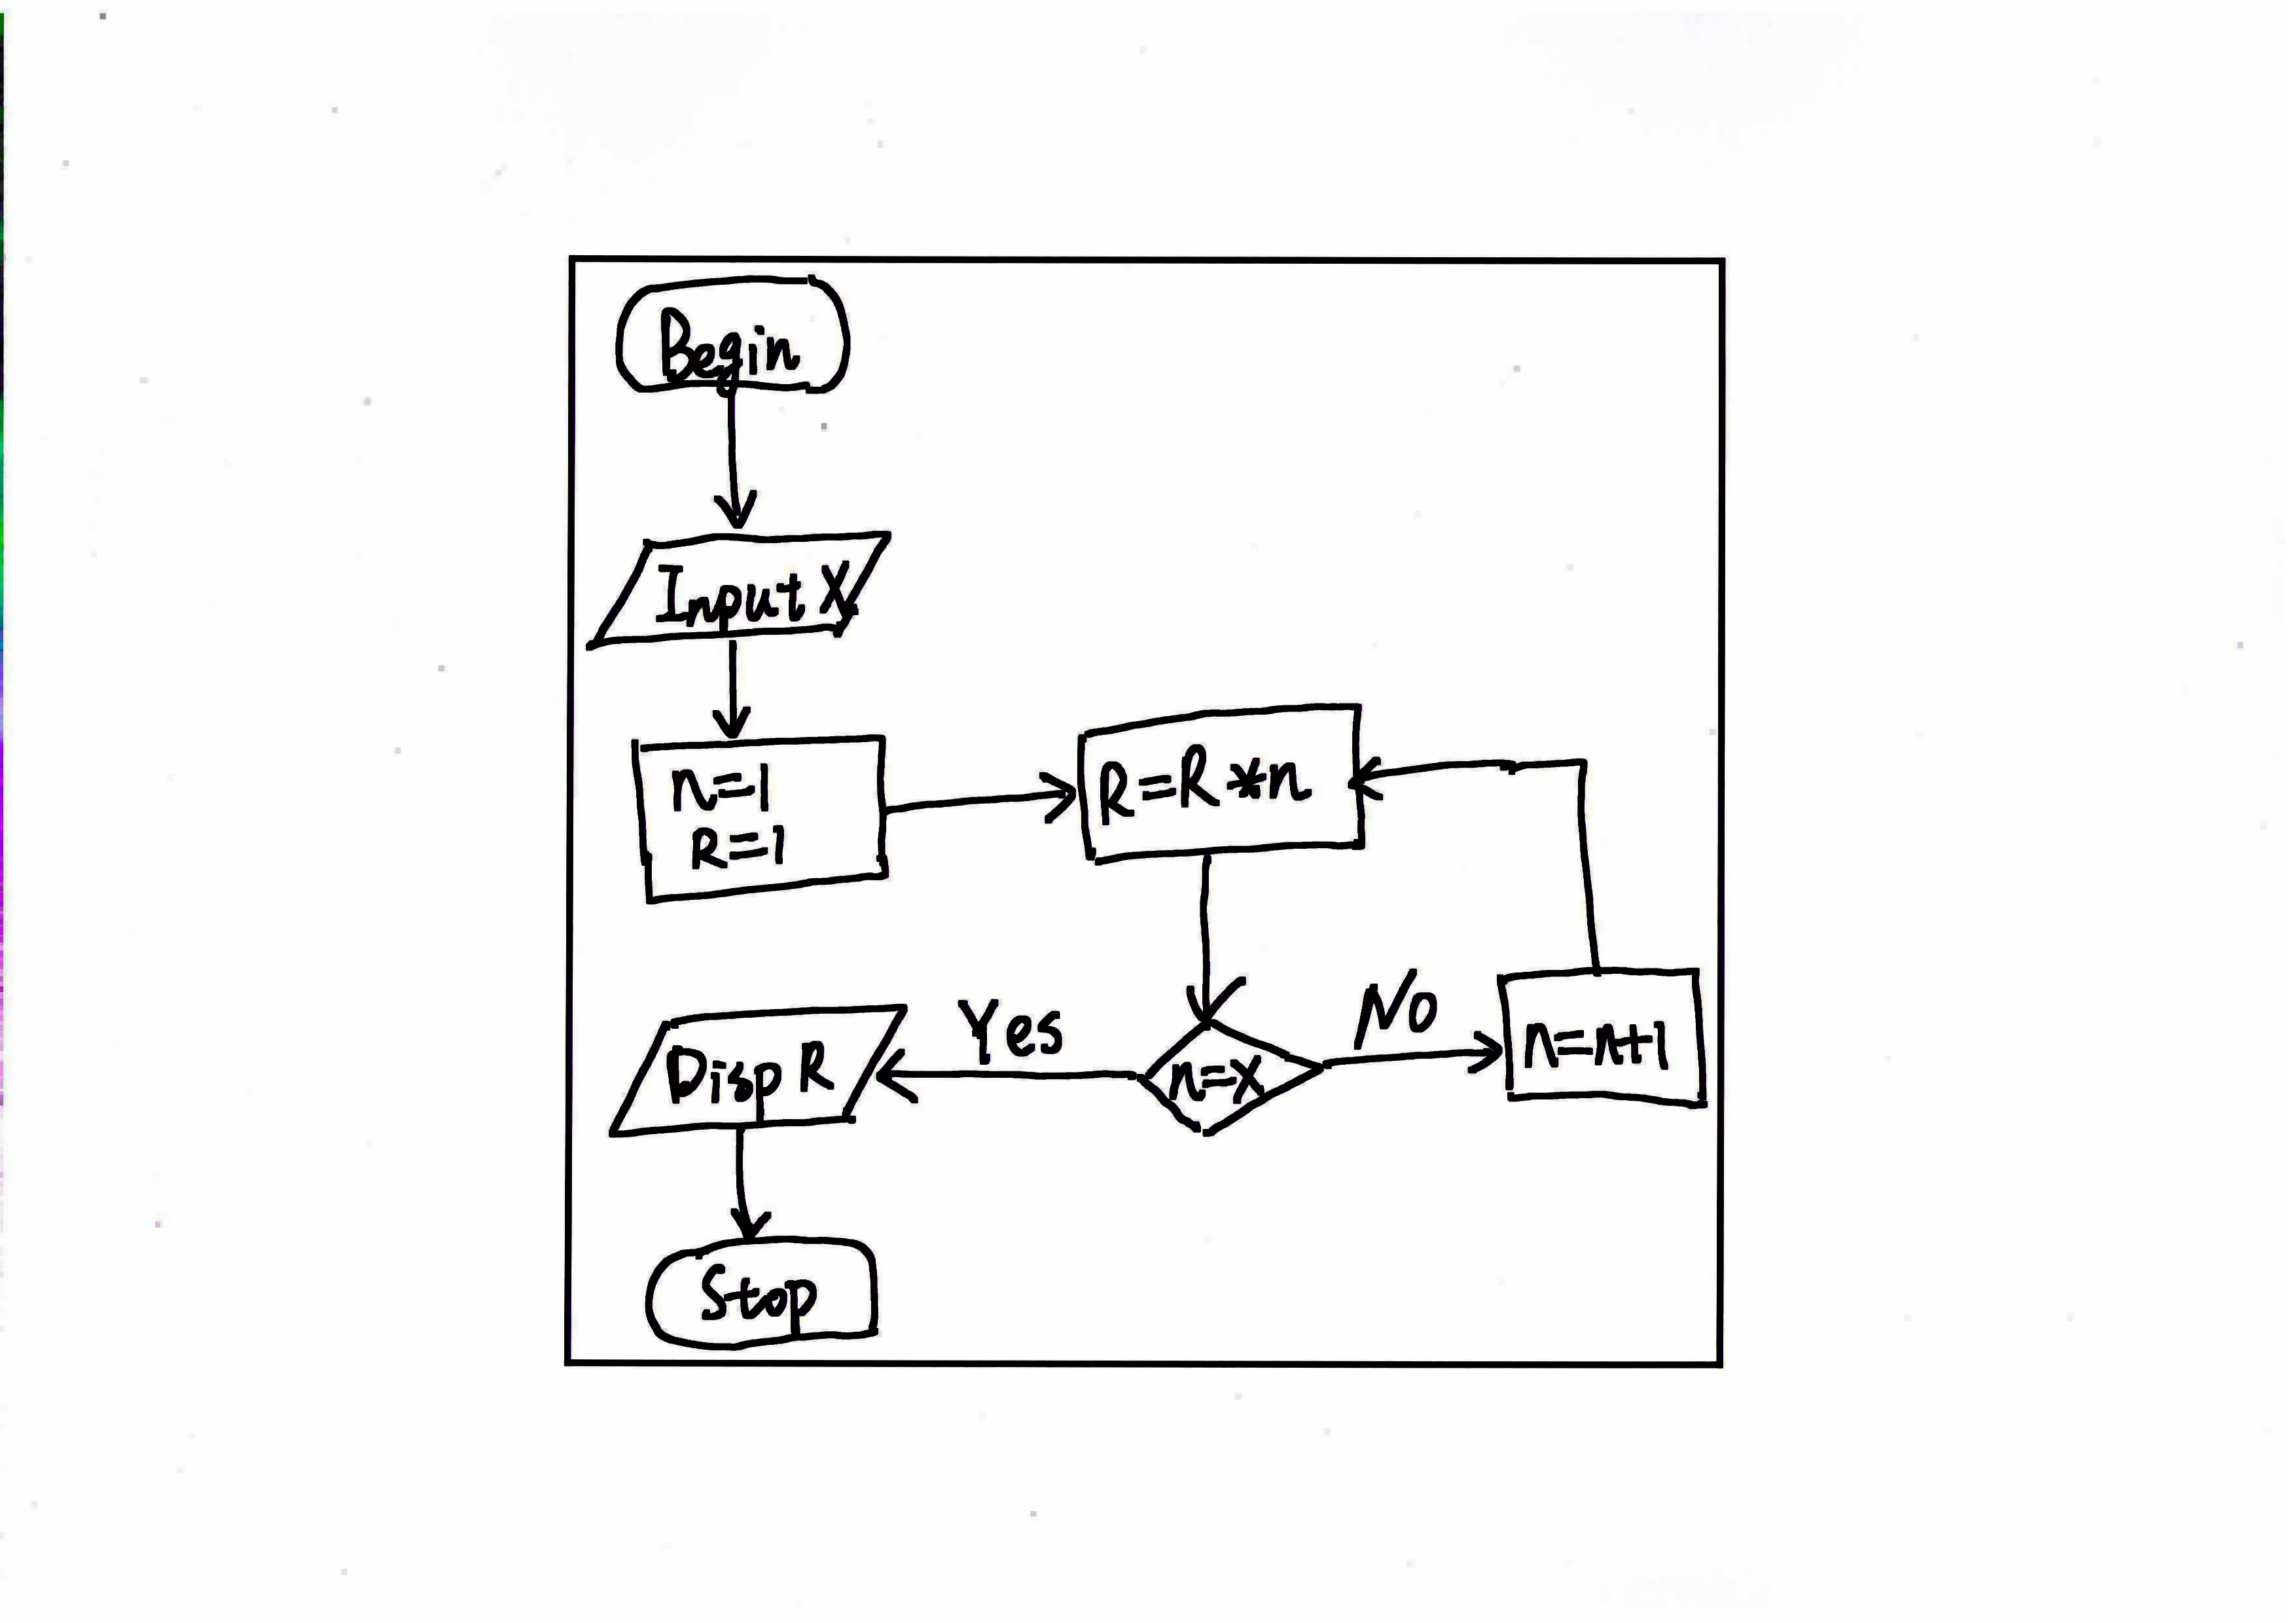 Begin
Input X
n=1
R=1
R=R*n
n=x
Yes
No
n=n+1
Disp R
Stop